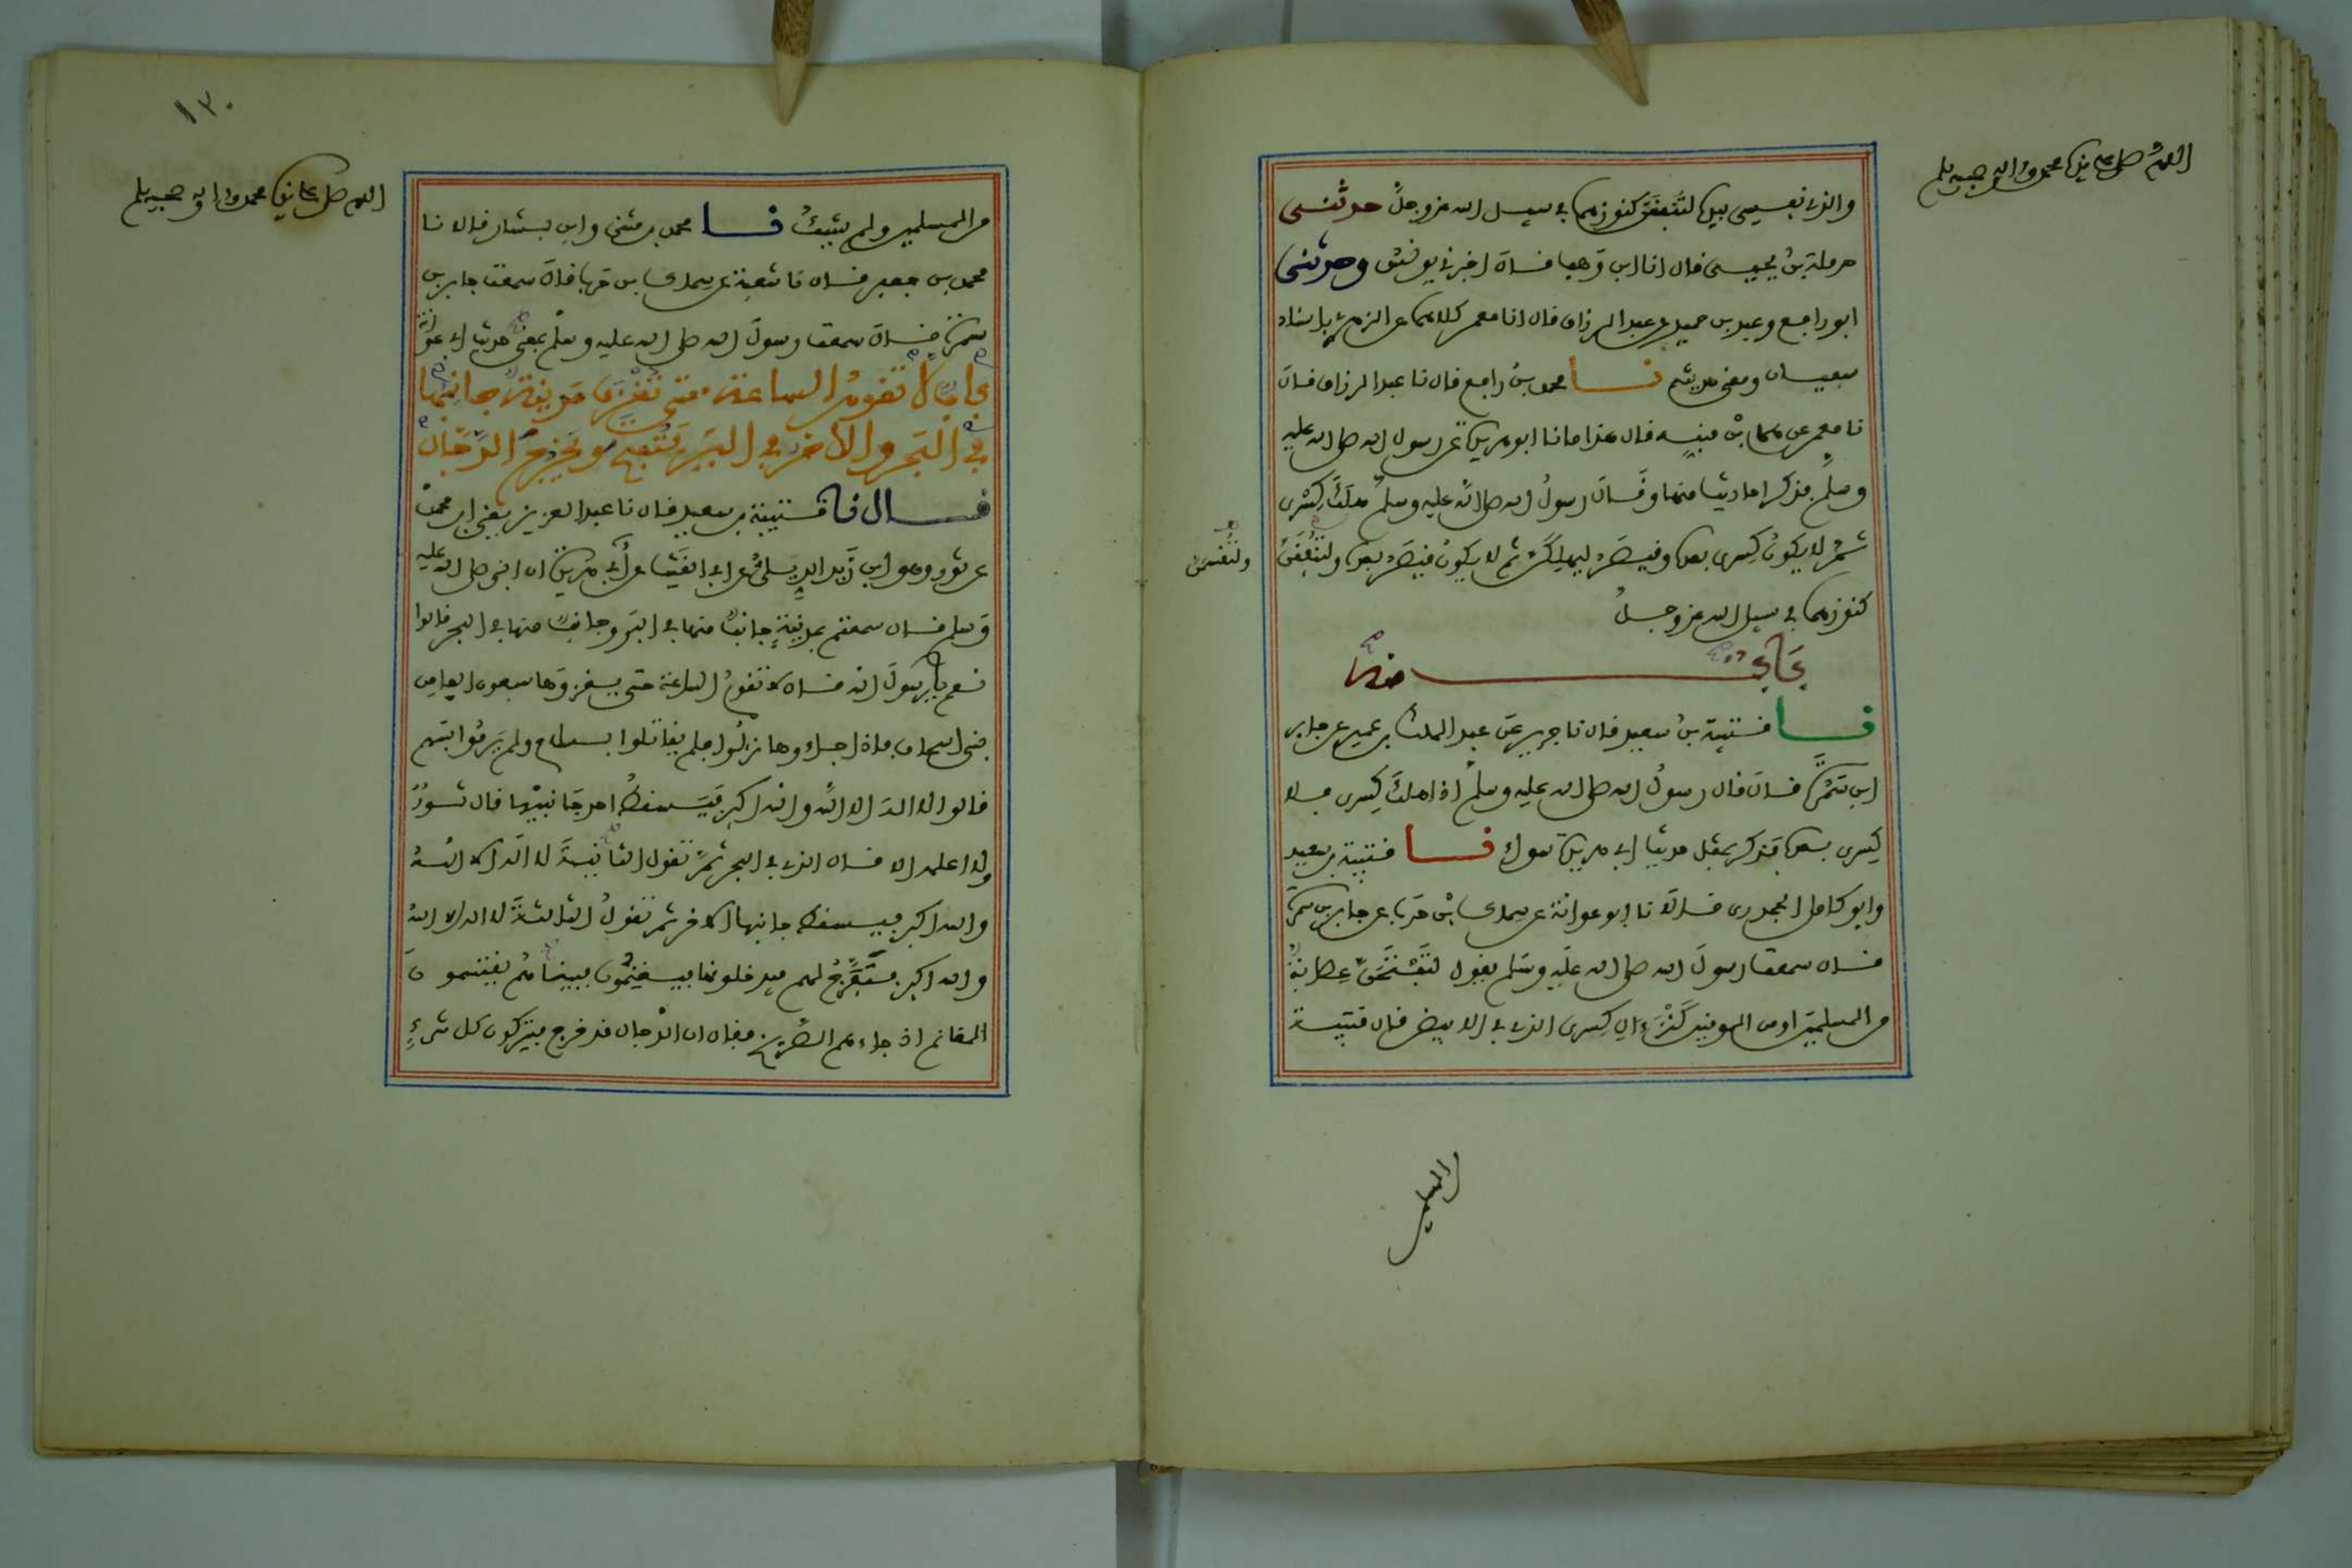 اللهم صل على نبيك محمد واله وصحبه وسلم
والذي نفسي بيده لتنفقن كنوزهما في سبيل الله عز وجل حدثني
حرملة بن يحيى قال انا ابن وهب قال اخبرني يونس وحدثني
ابن رافع وعبد بن حميد عن عبد الرزاق قال انا معمر كلاهما عن الزهري باسناد
سفيان ومعنى حديثه نا محمد بن رافع قال نا عبد الرزاق قال
نا معمر عن همام بن منبه قال هذا ما نا ابو هريرة عن رسول الله صلى الله عليه
وسلم فذكر احاديث منها وقال رسول الله صلى الله عليه وسلم هلك كسرى
ثم لا يكون كسرى بعده وقيصر ليهلكن ثم لا يكون قيصر بعده ولتنفقن
ولتقسمن
كنوزهما في سبيل الله عز وجل
باب منه
نا قتيبة بن سعيد قال نا جرير عن عبد الملك بن عمير عن جابر
ابن سمرة قال قال رسول الله صلى الله عليه وسلم اذا هلك كسرى فلا
كسرى بعده فذكر بمثل حديث ابي هريرة سواء نا قتيبة بن سعيد
وابو كامل الجحدري قالا نا ابو عوانة عن سماك بن حرب عن جابر بن سمرة
قال سمعت رسول الله صلى الله عليه وسلم يقول لتفتحن عصابة
من المسلمين او من المومنين كنز ءال كسرى الذي في الابيض قال قتيبة
المسلمين
١٣٠
اللهم صل على نبيك محمد واله وصحبه وسلم
من المسلمين ولم يشك نا محمد بن مثنى وابن بشار قالا نا
محمد بن جعفر قال نا شعبة عن سماك بن حرب قال سمعت جابر بن
سمرة قال سمعت رسول الله صلى الله عليه وسلم بمعنى حديث ابي عوانة
باب لا تقوم الساعة حتى تفتح مدينة جانبها
في البحر والاخر في البر فتفتح ويخرج الدجال
قال نا قتيبة بن سعيد قال نا عبد العزيز يعني ابن محمد
عن ثور وهو ابن زيد الديلي عن ابي الغيث عن أبي هريرة ان النبي صلى الله عليه
وسلم قال سمعتم بمدينة جانب منها في البر وجانب منها في البحر قالوا
نعم يا رسول الله قال لا تقوم الساعة حتى يغزوها سبعون الفا من
بني اسحاق فاذا جاءوها نزلوا فلم يقاتلوا بسلاح ولم يرموا بسهم
قالوا لا اله الا الله والله اكبر فيسقط احد جانبيها قال ثور
ولا اعلمه الا قال الذي في البحر ثم تقول الثانية لا اله الا الله
والله اكبر فيسقط جانبها الاخر ثم تقول الثالثة لا اله الا الله
والله اكبر فيفرج لهم فيدخلونها فيغنمون فبينا هم يقتسمون
المغانم اذ جاءهم الصريخ فقال ان الدجال قد خرج فيتركون كل شيء